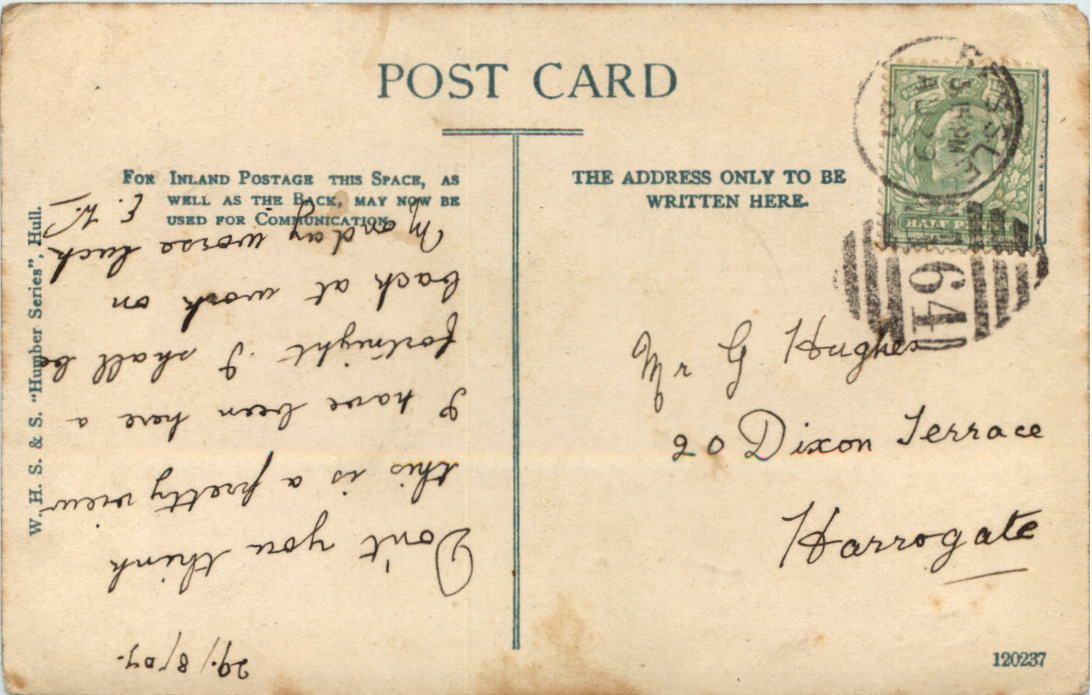 POST CARD
FOR INLAND POSTAGE THIS SPACE, AS
WELL AS THE BACK, MAY NOW BE
USED FOR COMMUNICATION.
THE ADDRESS ONLY TO BE
WRITTEN HERE.
W. H. S. & S. "Humber Series", Hull.
29/8/07.
Don't you think
this is a pretty view
I have been here a
fortnight. I shall be
back at work on
Monday worse luck
Mr G Hughes
20 Dixon Terrace
Harrogate
HALF PENNY
HESSLE
64
120237